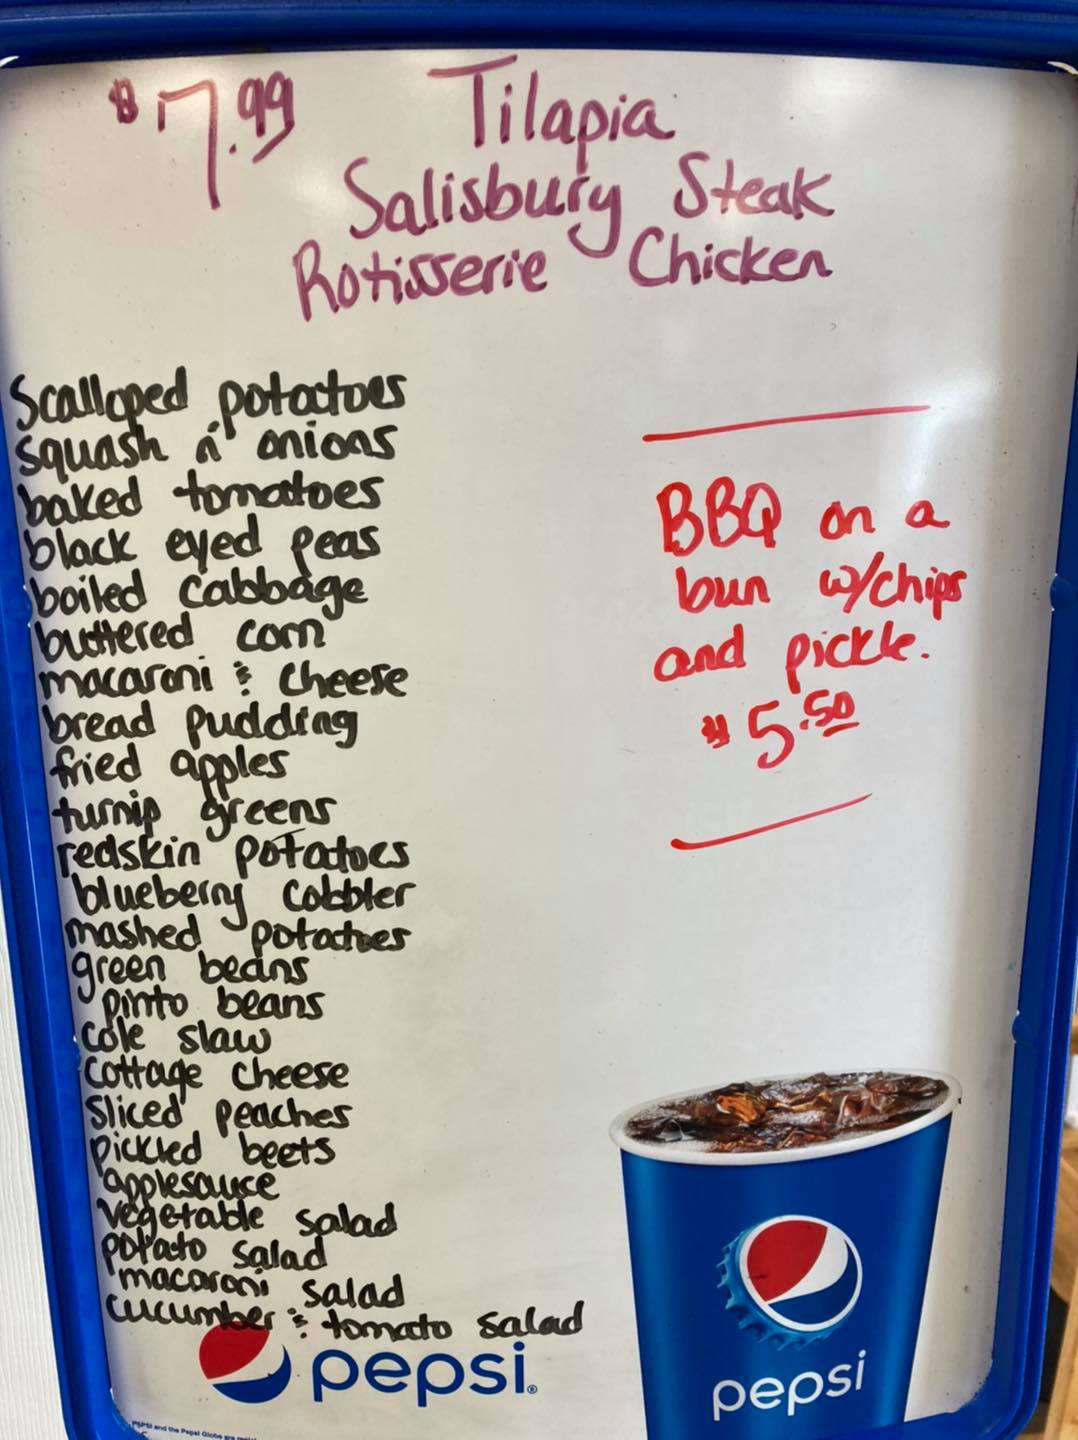 $7.99 Tilapia
Salisbury Steak
Rotisserie Chicken
Scalloped potatoes
squash n' onions
baked tomatoes
black eyed peas
boiled cabbage
buttered corn
macaroni & cheese
bread pudding
fried apples
turnip greens
redskin potatoes
blueberry cobbler
mashed potatoes
green beans
pinto beans
cole slaw
cottage cheese
sliced peaches
pickled beets
applesauce
vegetable salad
potato salad
macaroni salad
cucumber & tomato salad
BBQ on a
bun w/chips
and pickle.
$5.50
pepsi®
pepsi
PEPSI and the Pepsi Globe are